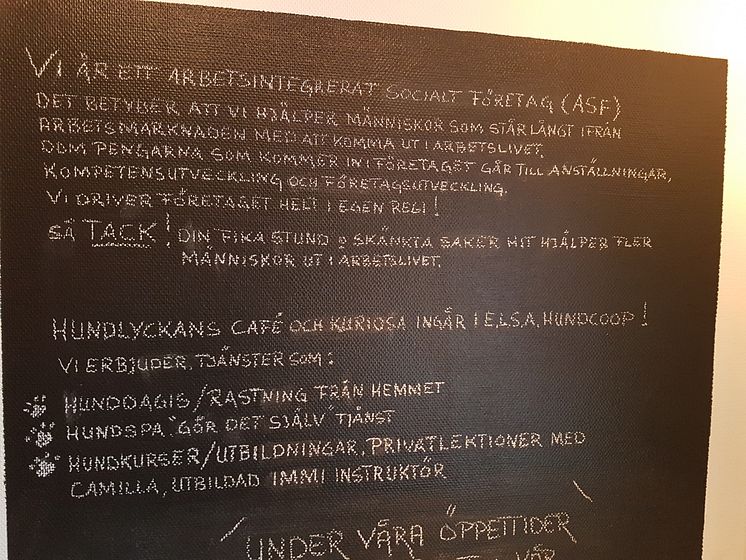 VI ÄR ETT ARBETSINTEGRERAT SOCIALT FÖRETAG (ASF)
DET BETYDER ATT VI HJÄLPER MÄNNISKOR SOM STÅR LÅNGT IFRÅN
ARBETSMARKNADEN MED ATT KOMMA UT I ARBETSLIVET.
DOM PENGARNA SOM KOMMER IN I FÖRETAGET GÅR TILL ANSTÄLLNINGAR,
KOMPETENSUTVECKLING OCH FÖRETAGSUTVECKLING.
VI DRIVER FÖRETAGET HELT I EGEN REGI!
SÅ TACK! DIN FIKA STUND & SKÄNKTA SAKER HIT HJÄLPER FLER
MÄNNISKOR UT I ARBETSLIVET.
HUNDLYCKANS CAFÉ OCH KURIOSA INGÅR I E.L.S.A. HUNDCOOP!
VI ERBJUDER TJÄNSTER SOM:
HUNDDAGIS/RASTNING FRÅN HEMMET
HUNDSPA "GÖR DET SJÄLV" TJÄNST
HUNDKURSER/UTBILDNINGAR, PRIVATLEKTIONER MED
CAMILLA, UTBILDAD IMMI INSTRUKTÖR
UNDER VÅRA ÖPPETTIDER
VÅR